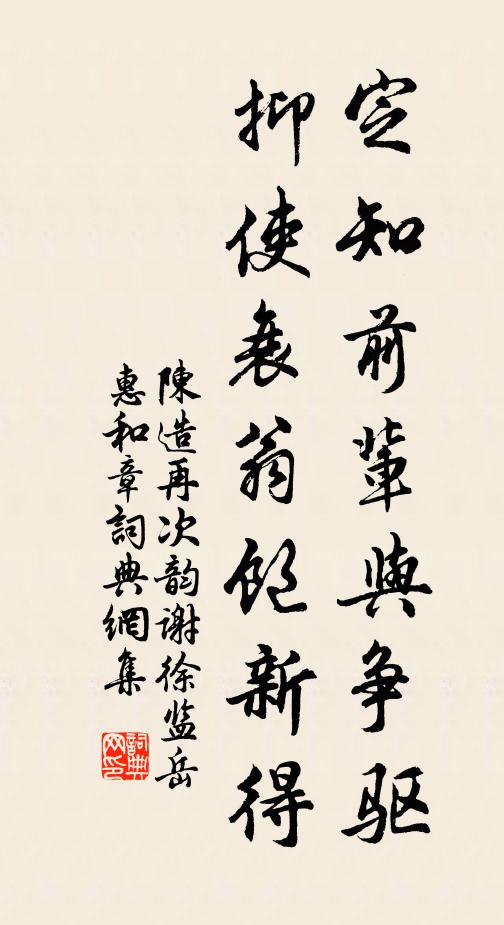 定知前輩與争驱
抑使衰翁飽新得
陳造再次韵谢徐监岳
惠和章詞典網集
詞典网印